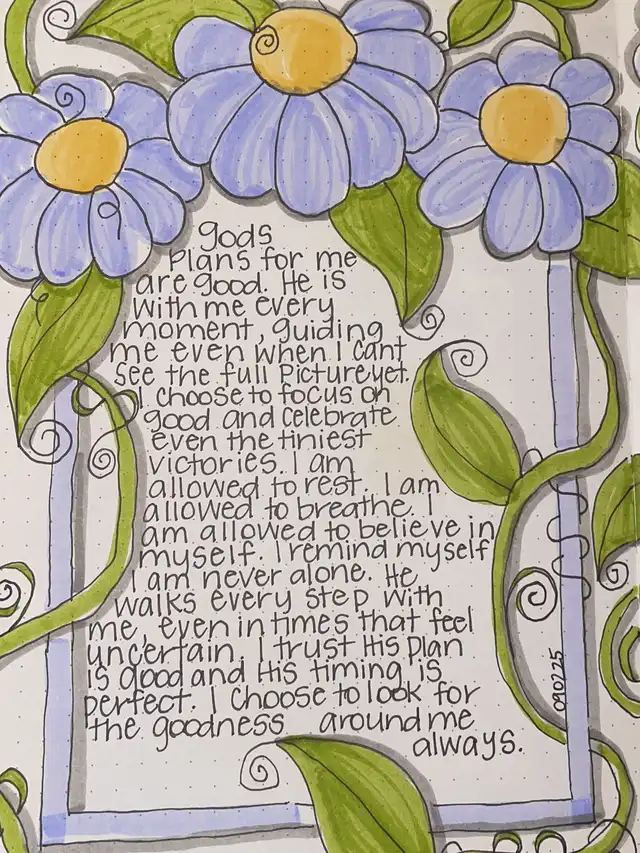 gods
Plans for me
are good. He is
with me every
moment, guiding
me even when I cant
see the full Picture yet.
I choose to focus on
good and celebrate
even the tiniest
victories. I am
allowed to rest. I am
allowed to breathe. I
am allowed to believe in
myself. I remind myself
I am never alone. He
walks every step with
me, even in times that feel
uncertain. I trust His plan
is good and His timing is
perfect. I choose to look for
the goodness around me
always.
090225